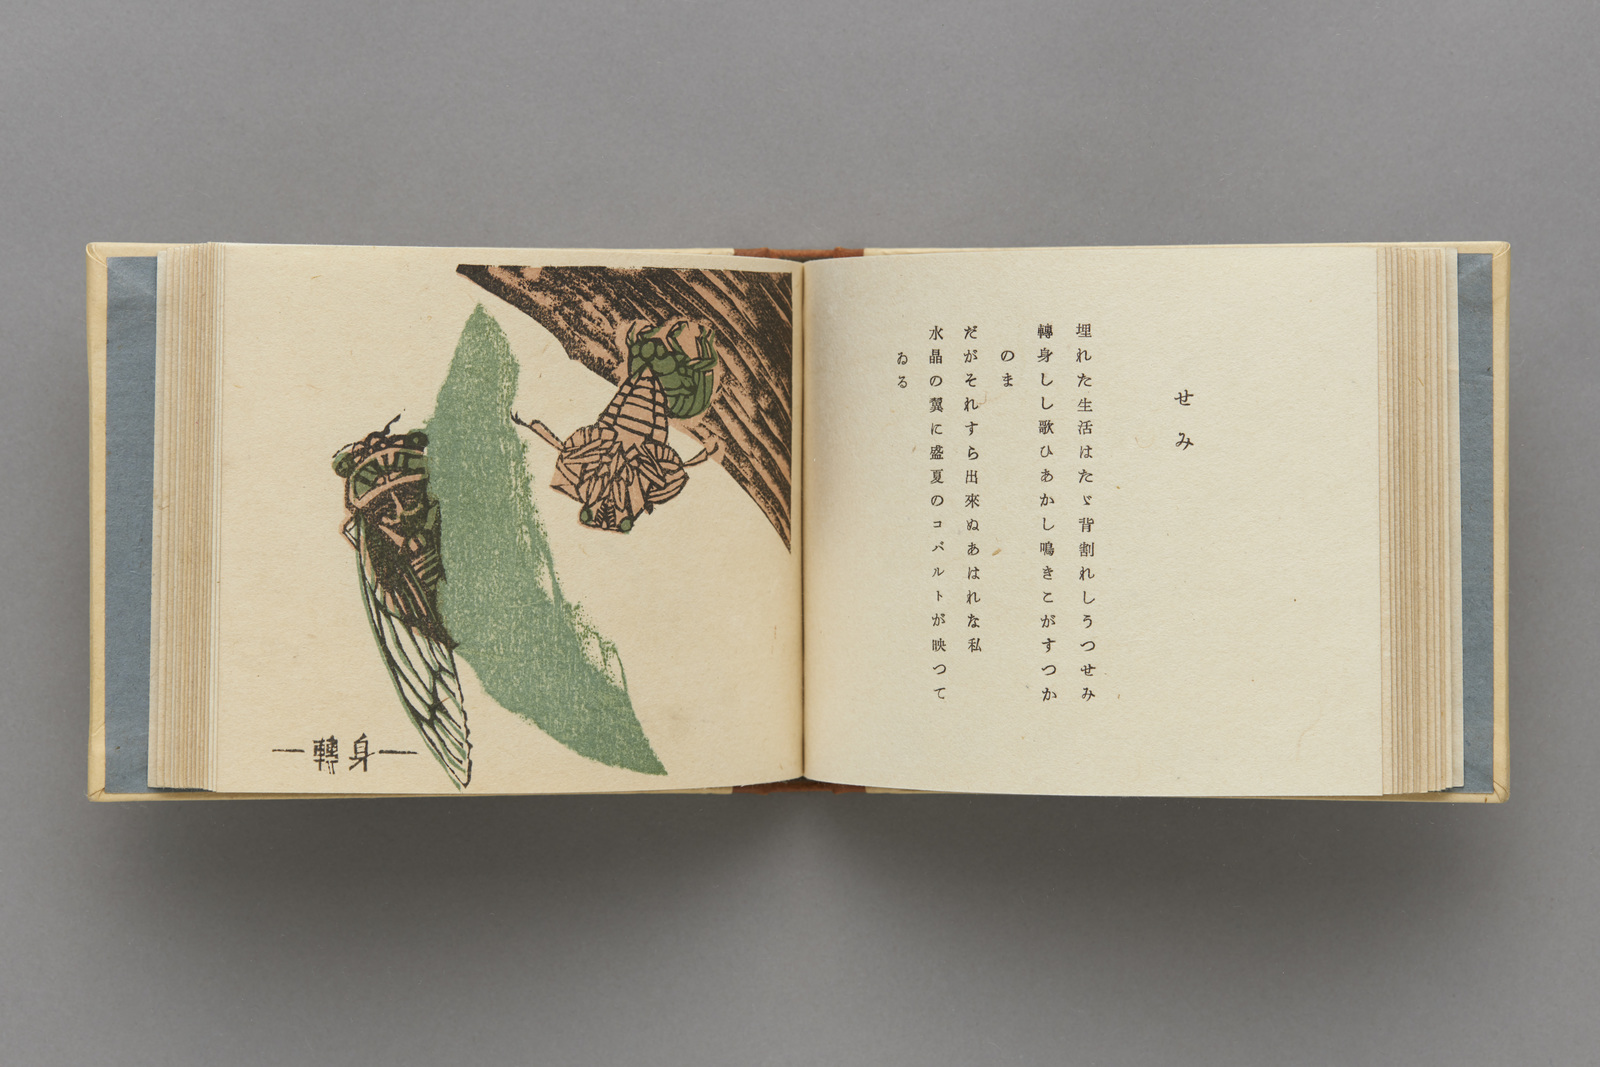 せみ
埋れた生活はたゞ背割れしうつせみ
轉身しし歌ひあかし鳴きこがすつか
のま
だがそれすら出來ぬあはれな私
水晶の翼に盛夏のコバルトが映つて
ゐる
―轉身―